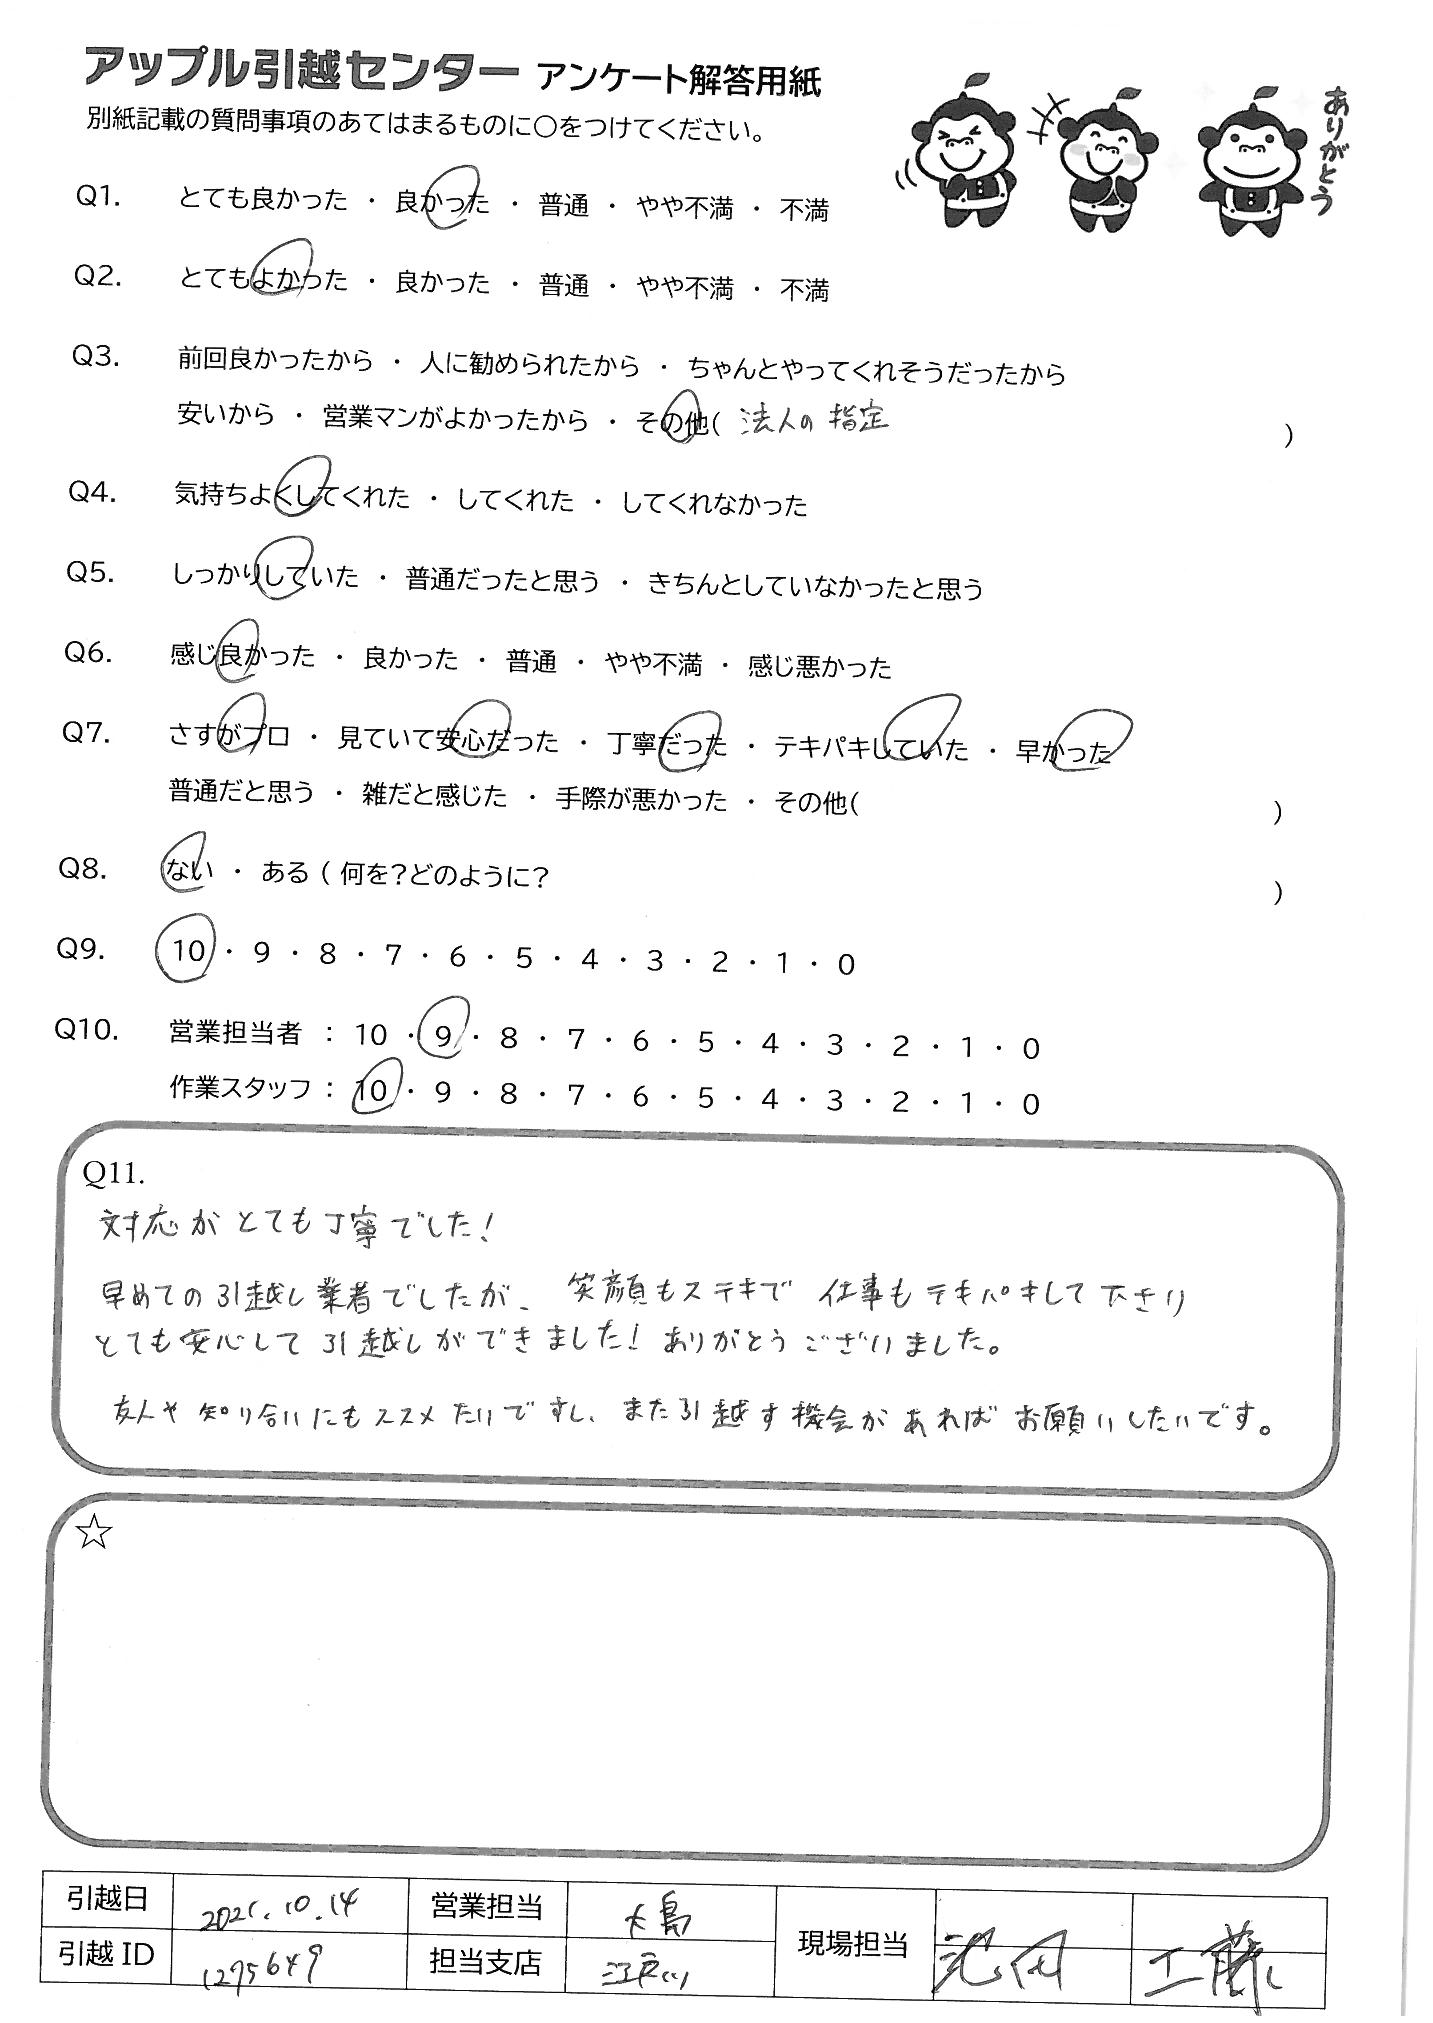 アップル引越センター アンケート解答用紙
別紙記載の質問事項のあてはまるものに○をつけてください。
ありがとう
Q1. とても良かった ・ 良かった ・ 普通 ・ やや不満 ・ 不満
Q2. とてもよかった ・ 良かった ・ 普通 ・ やや不満 ・ 不満
Q3. 前回良かったから ・ 人に勧められたから ・ ちゃんとやってくれそうだったから
安いから ・ 営業マンがよかったから ・ その他( 法人の指定 )
Q4. 気持ちよくしてくれた ・ してくれた ・ してくれなかった
Q5. しっかりしていた ・ 普通だったと思う ・ きちんとしていなかったと思う
Q6. 感じ良かった ・ 良かった ・ 普通 ・ やや不満 ・ 感じ悪かった
Q7. さすがプロ ・ 見ていて安心だった ・ 丁寧だった ・ テキパキしていた ・ 早かった
普通だと思う ・ 雑だと感じた ・ 手際が悪かった ・ その他( )
Q8. ない ・ ある ( 何を?どのように? )
Q9. 10 ・ 9 ・ 8 ・ 7 ・ 6 ・ 5 ・ 4 ・ 3 ・ 2 ・ 1 ・ 0
Q10. 営業担当者 : 10 ・ 9 ・ 8 ・ 7 ・ 6 ・ 5 ・ 4 ・ 3 ・ 2 ・ 1 ・ 0
作業スタッフ : 10 ・ 9 ・ 8 ・ 7 ・ 6 ・ 5 ・ 4 ・ 3 ・ 2 ・ 1 ・ 0
Q11.
対応がとても丁寧でした!
早めての引越し業者でしたが、笑顔もステキで仕事もテキパキして下さり
とても安心して引越しができました!ありがとうございました。
友人や知り合いにもススメたいですし、また引越す機会があればお願いしたいです。
☆
引越日 2021.10.14 営業担当 大島 現場担当 池田 工藤
引越ID 1275649 担当支店 江戸川